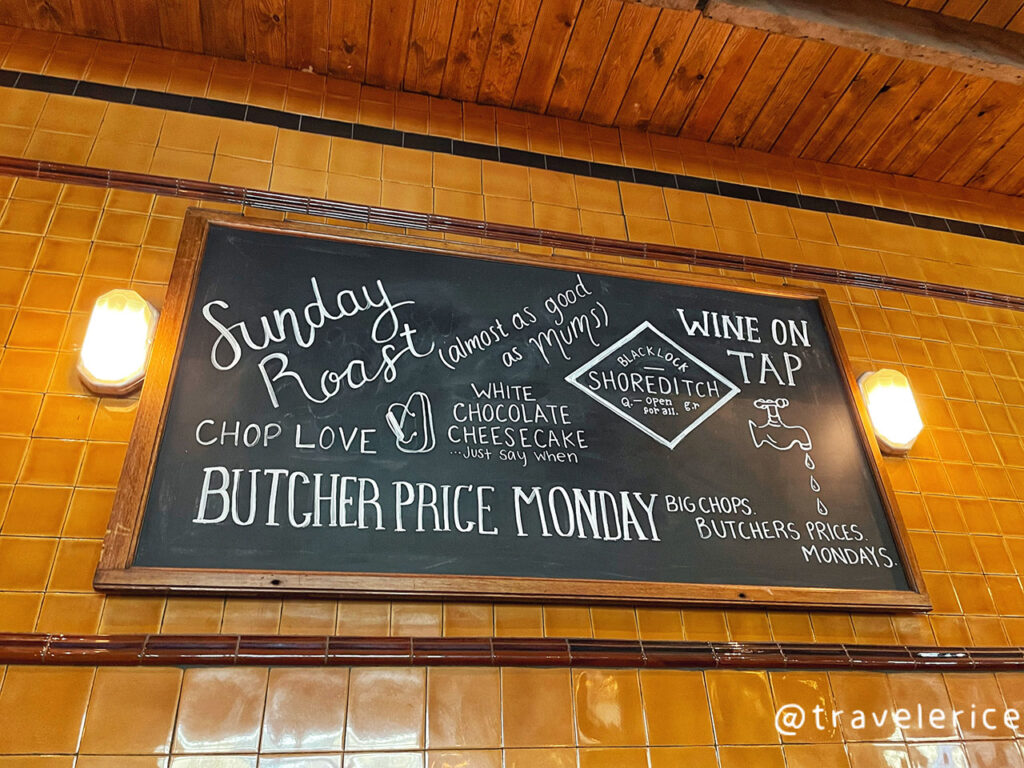 Sunday
Roast
(almost as good
as Mums)
BLACKLOCK
SHOREDITCH
open
for all.
WINE ON
TAP
CHOP LOVE
WHITE
CHOCOLATE
CHEESECAKE
...Just say when
BUTCHER PRICE MONDAY
BIG CHOPS.
BUTCHERS PRICES.
MONDAYS.
@travelerice